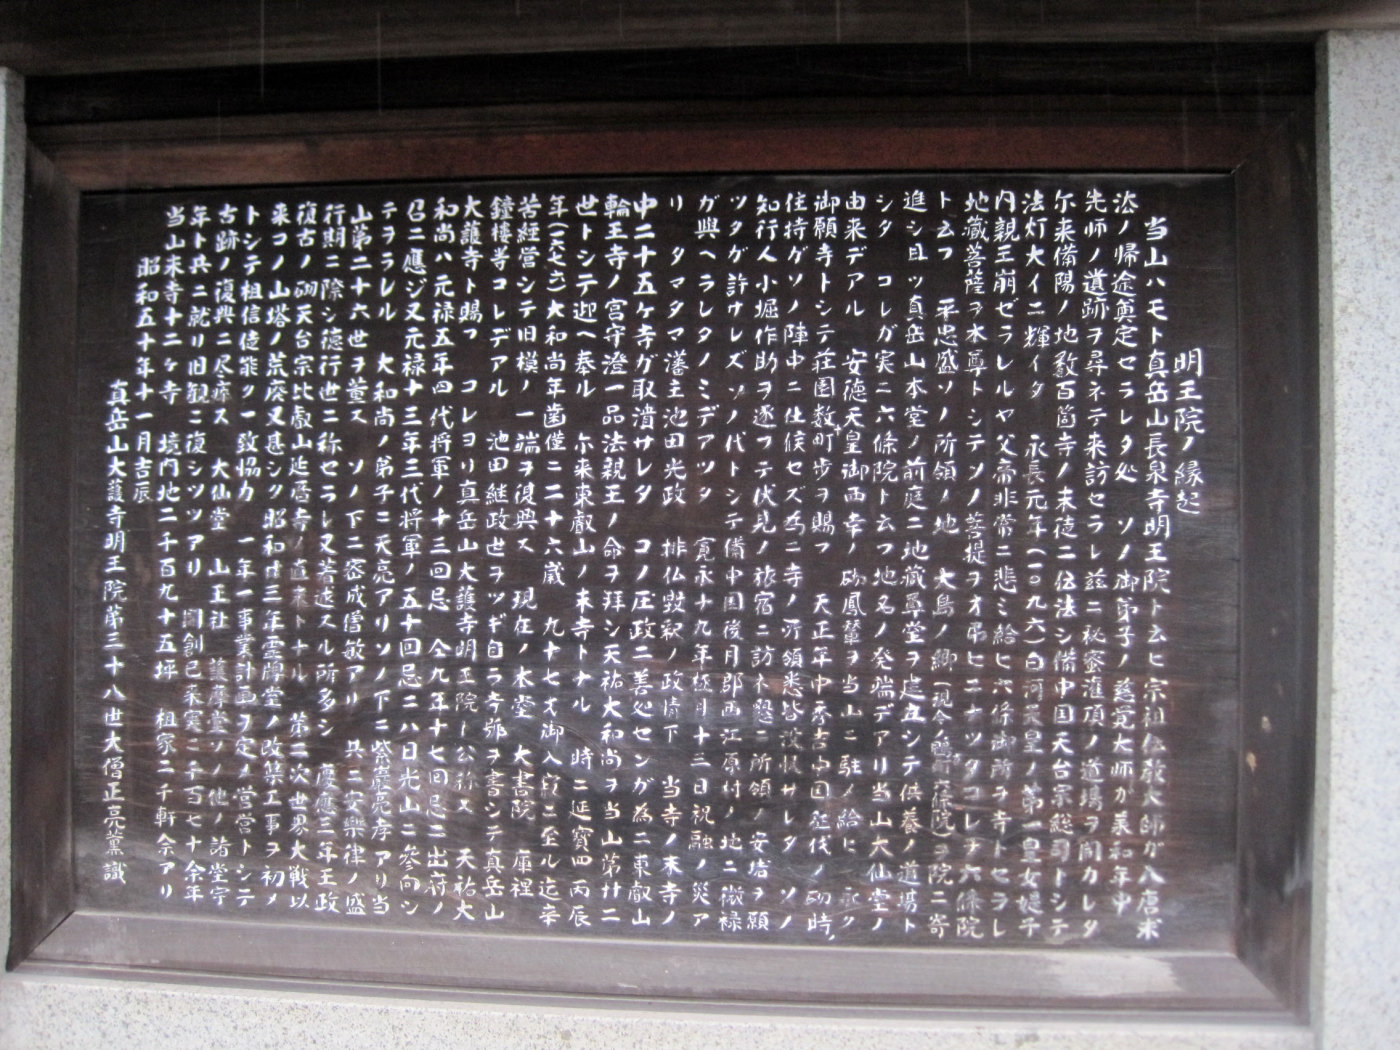 明王院ノ縁起
当山ハモト真岳山長泉寺明王院ト云ヒ宗祖伝教大師ガ入唐求
法ノ帰途奠定セラレタ処 ソノ御弟子ノ慈覚大師が承和年中
先師ノ遺跡ヲ尋ネテ来訪セラレ茲ニ秘密灌頂ノ道場ヲ開カレタ
尓来備陽ノ地数百箇寺ノ末徒ニ伝法シ備中国天台宗総司トシテ
法灯大イニ輝イタ 永長元年(一〇九六)白河天皇ノ第一皇女媞子
内親王崩ゼラレルヤ父帝非常ニ悲ミ給ヒ六條御所ヲ寺トセラレ
地蔵菩薩ヲ本尊トシテソノ菩提ヲオ弔ヒニナツタコレヲ六條院
ト云フ 平忠盛ソノ所領ノ地 大島ノ郷(現今ノ鴨方六條院)ヲ院ニ寄
進シ且ツ真岳山本堂ノ前庭ニ地蔵尊堂ヲ建立シテ供養ノ道場ト
シタ コレガ実ニ六條院ト云フ地名ノ発端デアリ当山大仙堂ノ
由来デアル 安徳天皇御西幸ノ砌鳳輦ヲ当山ニ駐メ給ヒ永ク
御願寺トシテ荘園数町歩ヲ賜フ 天正年中秀吉中国征伐ノ砌時ノ
住持ガソノ陣中ニ仕候セズ為ニ寺ノ所領悉皆没収サレタ ソノ
知行人小堀作助ヲ逐フテ伏見ノ旅宿ニ訪ネ懇ニ所領ノ安堵ヲ願
ツタガ許ウレズソノ代トシテ備中国後月郡西江原村ノ地ニ微禄
ガ與ヘラレタノミデアツタ 寛永十九年極月十三日祝融ノ災ア
リ タマタマ藩主池田光政 排仏毀釈ノ政情下 当寺ノ末寺ノ
中二十五ヶ寺ガ取潰サレタ コノ圧政ニ善処センガ為ニ東叡山
輪王寺ノ宮守澄一品法親王ノ命ヲ拝シ天祐大和尚ヲ当山第廿二
世トシテ迎ヘ奉ル 尓来東叡山ノ末寺トナル 時ニ延寶四丙辰
年(一六七六)大和尚年歯僅ニ二十六歳 九十七才御入寂ニ至ル迄辛
苦経営シテ旧模ノ一端ヲ復興ス 現在ノ本堂 大書院 庫裡
鐘楼等コレデアル 池田継政世ヲツギ自ラ寺号ヲ書シテ真岳山
大護寺ト賜フ コレヨリ真岳山大護寺明王院ト公称ス 天祐大
和尚ハ元禄五年四代将軍ノ十三回忌 仝九年十七回忌ニ出府ノ
召ニ應ジ又元禄十三年三代将軍ノ五十回忌ニハ日光山ニ参向シ
テヲラレル 大和尚ノ弟子ニ天亮アリソノ下ニ紫巌亮孝アリ当
山第二十六世ヲ董ス ソノ下ニ密成僧敏アリ 共ニ安樂律ノ盛
行期ニ際シ德行世ニ称セラレ又著述スル所多シ 慶應三年王政
復古ノ砌天台宗比叡山延暦寺ノ直末トナル 第二次世界大戦以
来コノ山塔ノ荒廃又甚シク昭和廿三年霊牌堂ノ改築工事ヲ初メ
トシテ祖信徒能ク一致協力 一年一事業計画ヲ定メ営営トシテ
古跡ノ復興ニ尽瘁ス 大仙堂 山王社 護摩堂ソノ他ノ諸堂宇
年ト共ニ就リ旧観ニ復シツツアリ 開創已来実ニ千百七十余年
当山末寺十二ヶ寺 境内地二千百九十五坪 祖家二千軒余アリ
昭和五十年十一月吉辰
真岳山大護寺明王院第三十八世大僧正亮薫識